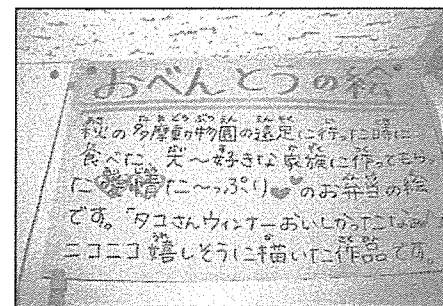 おべんとうの絵
秋の多摩動物園の遠足に行った時に
食べた、大〜好きな家族に作ってもらっ
た愛情た〜っぷり のお弁当の絵
です。「タコさんウィンナーおいしかったなぁ」
ニコニコ嬉しそうに描いた作品です。